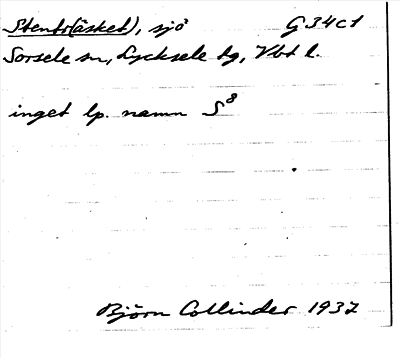 Stentr(äsket), sjö G 34c1
Sorsele sn, Lycksele tg, Vbt l.
inget lp. namn S8
Björn Collinder 1937